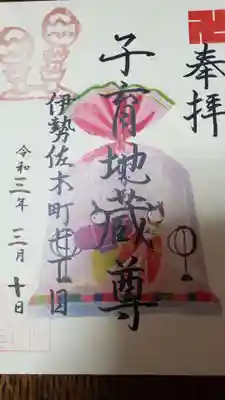 卍
奉拝
子育地蔵尊
伊勢佐木町廿丁目
令和三年三月十日